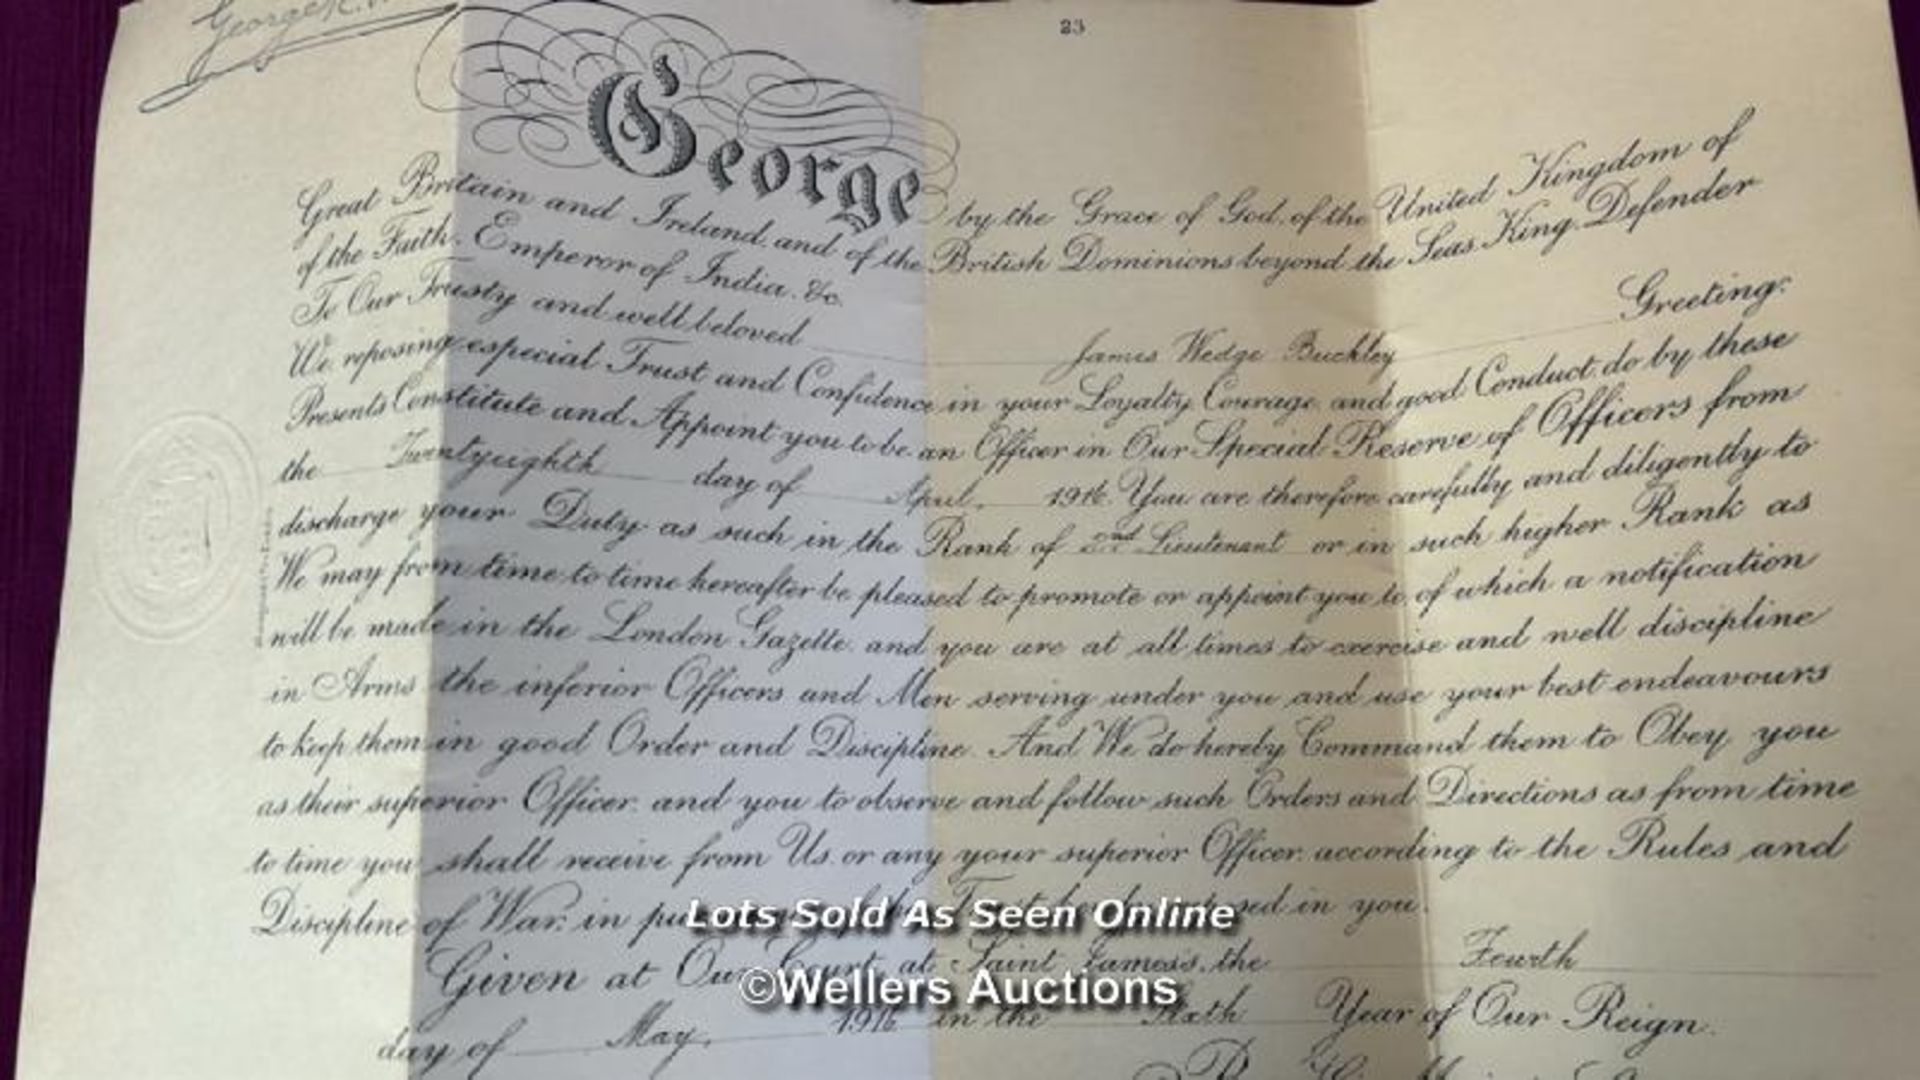 George R.
23
George by the Grace of God, of the United Kingdom of
Great Britain and Ireland, and of the British Dominions beyond the Seas, King, Defender
of the Faith, Emperor of India, &c.
To Our Trusty and well beloved James Wedge Buckley Greeting:
We, reposing especial Trust and Confidence in your Loyalty, Courage, and good Conduct, do by these
Presents Constitute and Appoint you to be an Officer in Our Special Reserve of Officers from
the Twentyeighth day of April, 1916. You are therefore carefully and diligently to
discharge your Duty as such in the Rank of 2nd Lieutenant or in such higher Rank as
We may from time to time hereafter be pleased to promote or appoint you to, of which a notification
will be made in the London Gazette, and you are at all times to exercise and well discipline
in Arms the inferior Officers and Men serving under you and use your best endeavours
to keep them in good Order and Discipline. And We do hereby Command them to Obey you
as their superior Officer, and you to observe and follow such Orders and Directions as from time
to time you shall receive from Us, or any your superior Officer, according to the Rules and
Discipline of War, in in you.
Lots Sold As Seen Online
Given at Our Court, at Saint James's, the Fourth
©Wellers Auctions
day of May, 1916 in the Sixth Year of Our Reign.